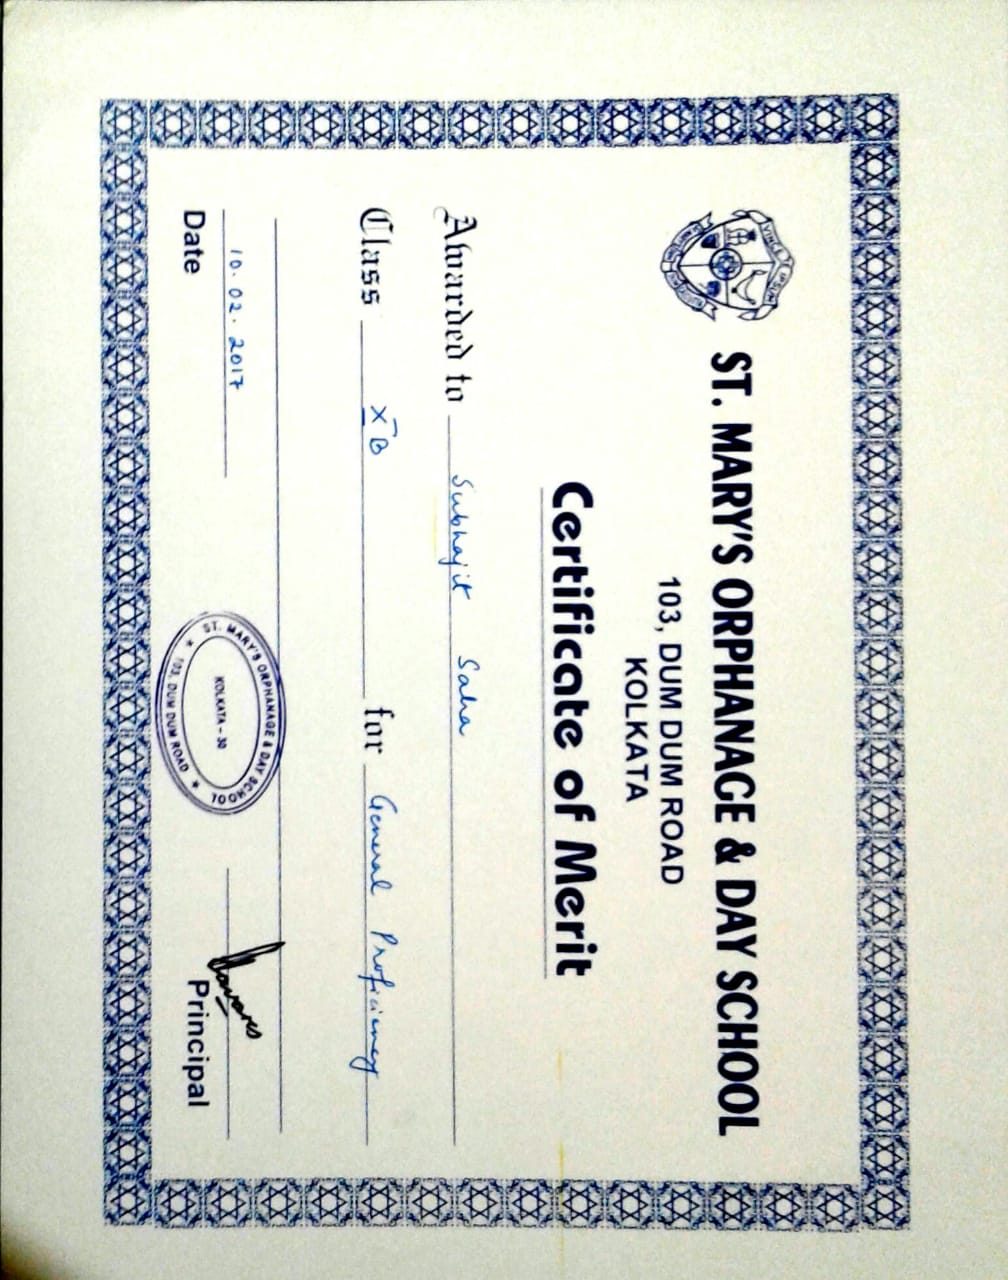 VINCE TE IPSUM
ST. MARY'S ORPHANAGE & DAY SCHOOL
103, DUM DUM ROAD
KOLKATA
Certificate of Merit
Awarded to Subhajit Saha
Class X B for General Proficiency
10.02.2017
Date
ST. MARY'S ORPHANAGE & DAY SCHOOL
KOLKATA - 30
★ 103, DUM DUM ROAD ★
Principal